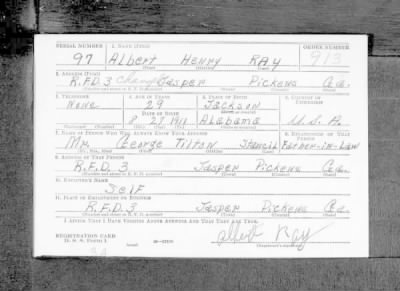 SERIAL NUMBER 1. NAME (Print) ORDER NUMBER
97 Albert Henry RAY 913
(First) (Middle) (Last)
2. ADDRESS (Print)
R.F.D. 3 Jasper Pickens Ga.
3. TELEPHONE 4. AGE IN YEARS 5. PLACE OF BIRTH 6. COUNTRY OF CITIZENSHIP
None 29 Jackson
DATE OF BIRTH
8 27 1911 Alabama U.S.A.
7. NAME OF PERSON WHO WILL ALWAYS KNOW YOUR ADDRESS 8. RELATIONSHIP OF THAT PERSON
Mr. George Tilton Stancil Father-in-Law
9. ADDRESS OF THAT PERSON
R.F.D. 3 Jasper Pickens Ga.
10. EMPLOYER'S NAME
Self
11. PLACE OF EMPLOYMENT OR BUSINESS
R.F.D. 3 Jasper Pickens Ga.
I AFFIRM THAT I HAVE VERIFIED ABOVE ANSWERS AND THAT THEY ARE TRUE.
REGISTRATION CARD
D. S. S. Form 1
Albert Ray